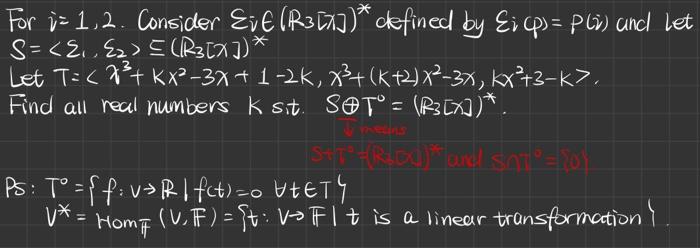 For i=1,2. Consider Σi∈(R3[x])* defined by Σi(p)=P(i) and let
S=<Σ1, Σ2>⊆(R3[x])*
Let T=<x³+kx²-3x+1-2k, x³+(k+2)x²-3x, kx²+3-k>.
Find all real numbers k s.t. S⊕T°=(R3[x])*.
↓ means
S+T°=(R3[x])* and S∩T°={0}
Ps: T°={f:V→R|f(t)=0 ∀t∈T}
V*=Hom𝔽(V,𝔽)={t:V→𝔽|t is a linear transformation}.